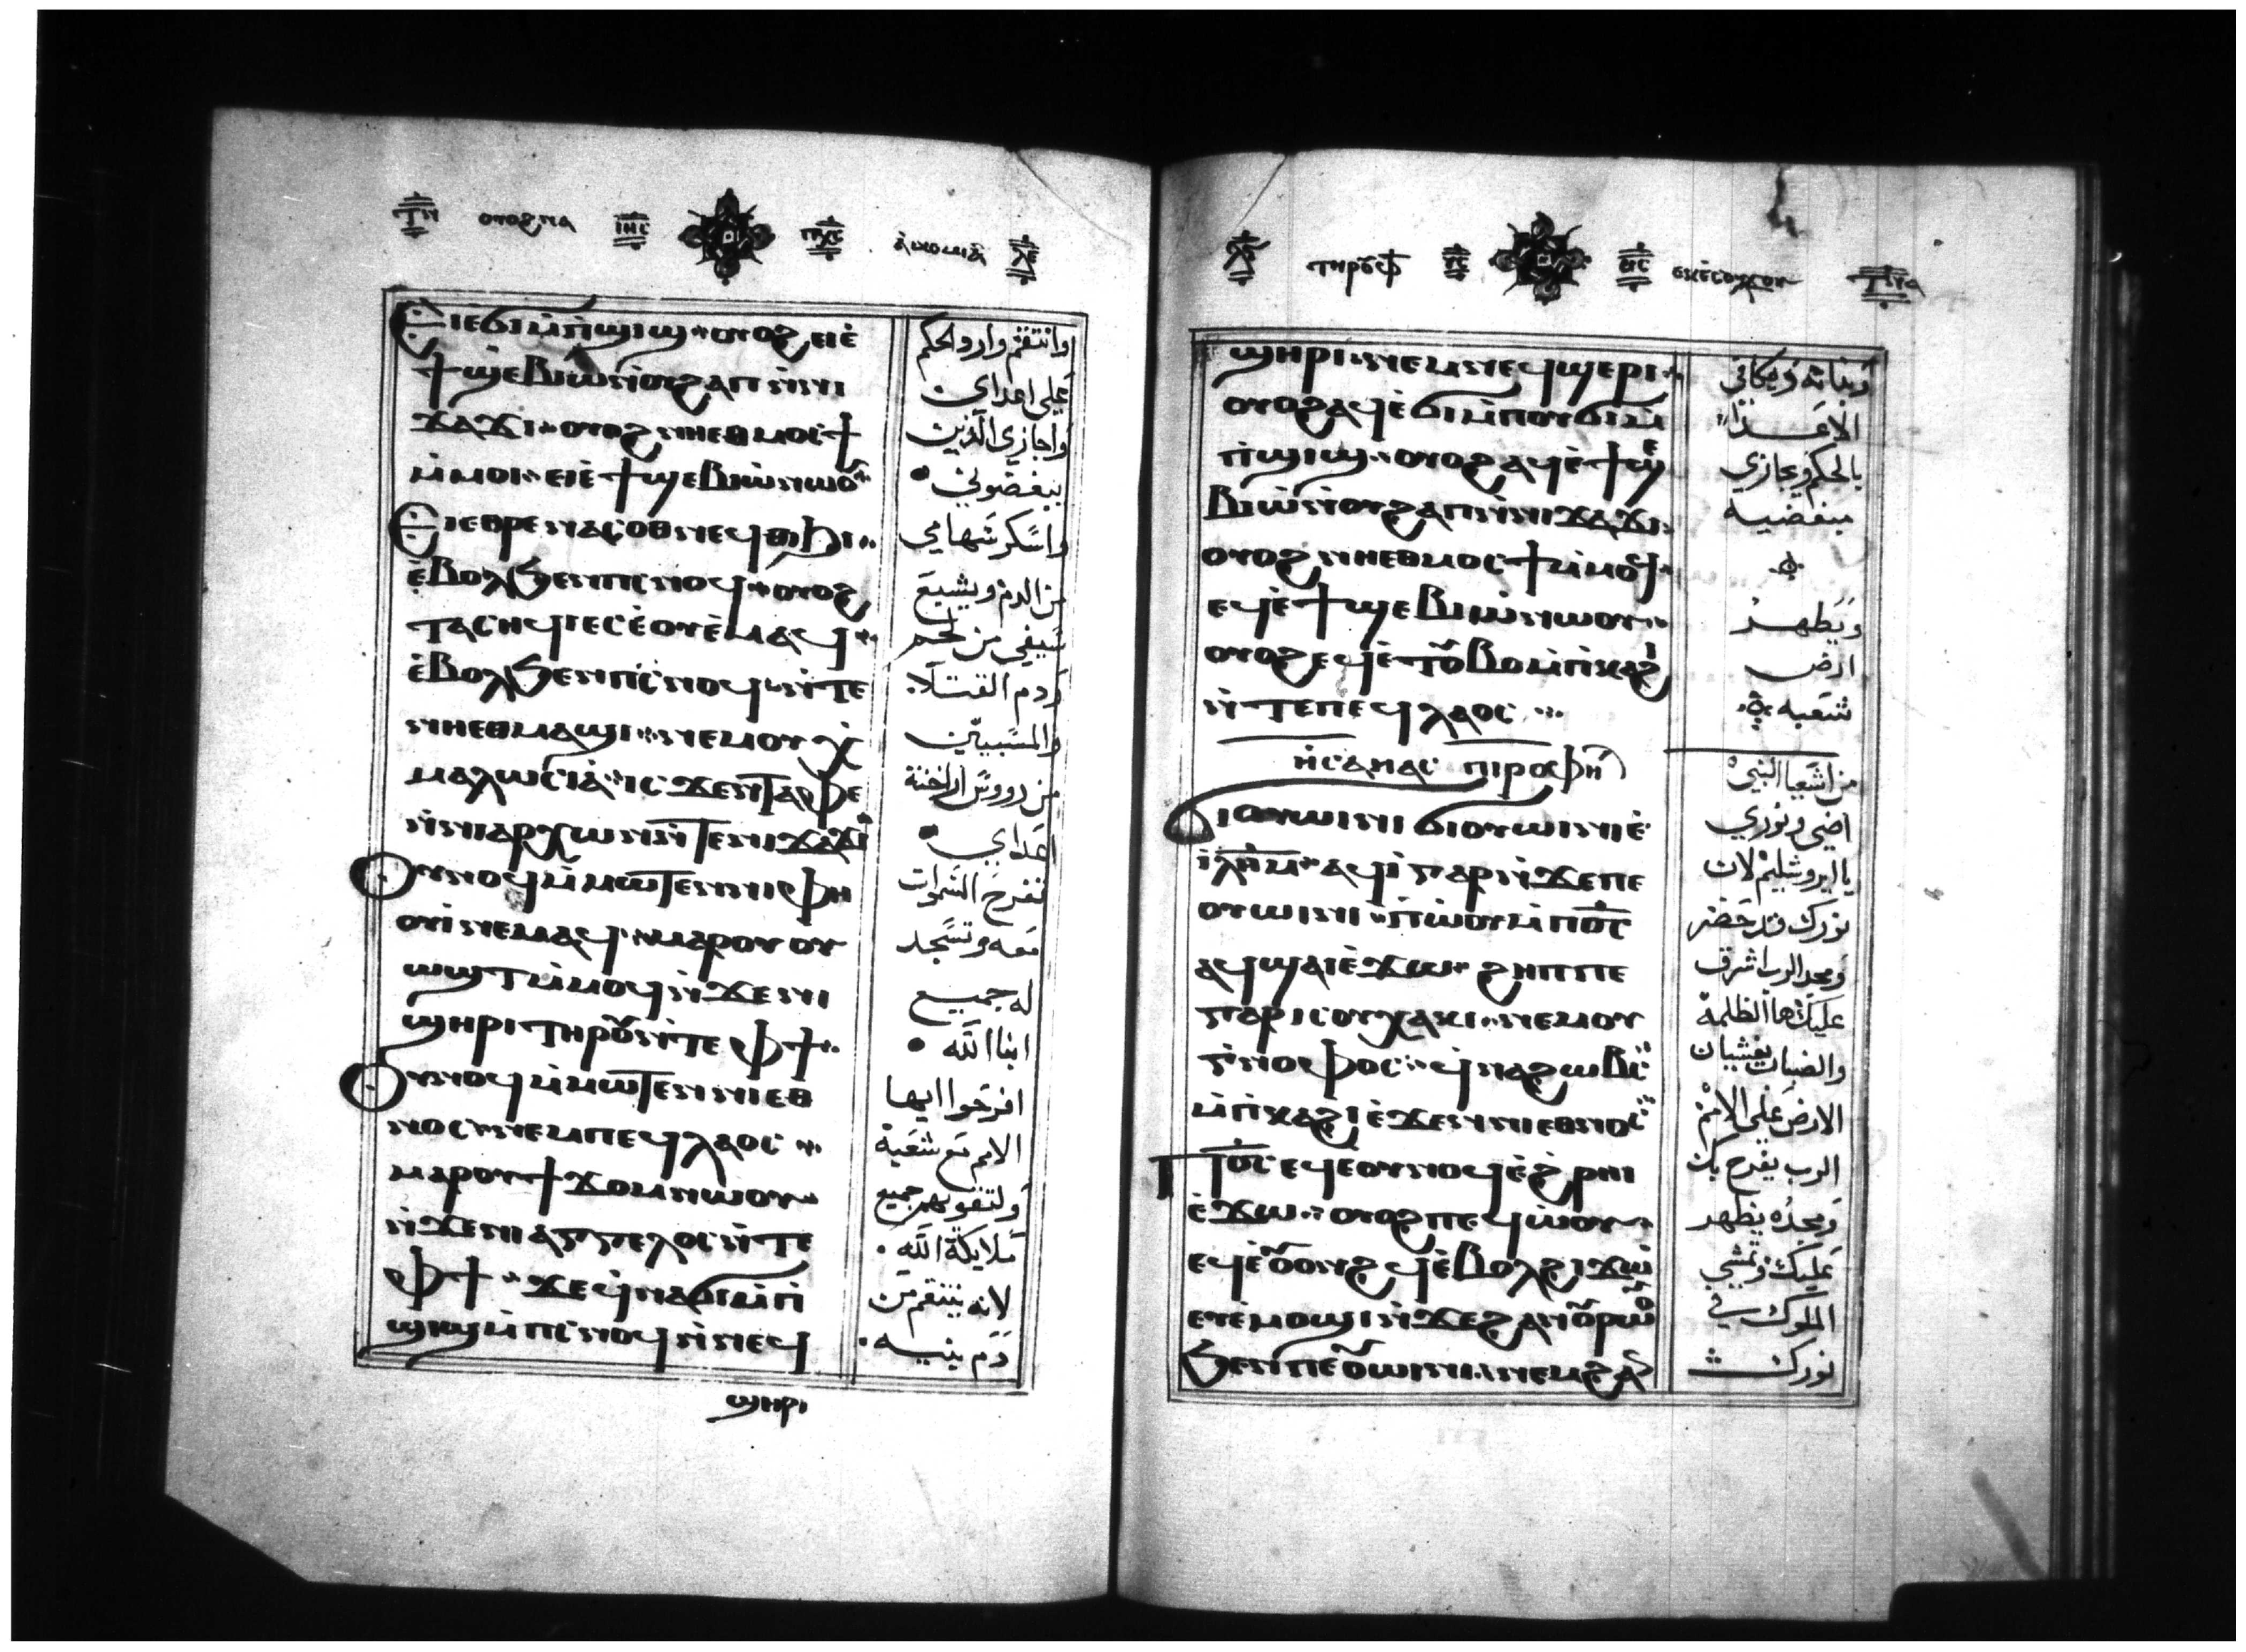 ⲟⲩⲟϩⲛⲁ ⲓⲏⲥ ⲡⲭⲥ
ⲉⲓⲉϭⲓ ⲙ̀ⲡ̀ϣⲓϣ ⲟⲩⲟϩ ⲉⲓⲉ̀
ϯϣⲉⲃⲓⲱ ⲛ̀ⲟⲩϩⲁⲡ ⲛ̀ⲛⲓ
ϫⲁϫⲓ ⲟⲩⲟϩ ⲛⲏⲉⲑⲙⲟⲥϯ
ⲙ̀ⲙⲟⲓ ⲉⲓⲉ̀ϯϣⲉⲃⲓⲱ ⲛⲱⲟⲩ
ⲉⲓⲉⲑⲣⲉ ⲛⲁⲥⲟⲑⲛⲉϥ ⲑⲓϧⲓ
ⲉ̀ⲃⲟⲗϧⲉⲛ ⲡⲥⲛⲟϥ ⲟⲩⲟϩ
ⲧⲁⲥⲏϥⲓ ⲉⲥⲉ̀ⲟⲩⲉⲙ ⲁϥ
ⲉ̀ⲃⲟⲗϧⲉⲛ ⲡⲥⲛⲟϥ ⲛ̀ⲧⲉ
ⲛⲏⲉⲑⲙⲁϣⲓ ⲛⲉⲙ ⲟⲩⲭ̀
ⲙⲁⲗⲱⲥⲓⲁ̀ ⲓⲥϫⲉⲛ ⲧⲁⲫⲉ
ⲛ̀ⲛⲓⲁⲣⲭⲱⲛ ⲛ̀ⲧⲉ ⲛⲓϫⲁϫⲓ
ⲟⲩⲛⲟϥ ⲙ̀ⲙⲱⲧⲉⲛ ⲛⲓⲫⲏ
ⲟⲩⲓ̀ ⲛⲉⲙⲁϥ ⲙⲁⲣⲟⲩⲟⲩ
ⲱϣⲧ ⲙ̀ⲙⲟϥ ⲛ̀ϫⲉ ⲛⲓ
ϣⲏⲣⲓ ⲧⲏⲣⲟⲩ ⲛ̀ⲧⲉ ⲫϯ
ⲟⲩⲛⲟϥ ⲙ̀ⲙⲱⲧⲉⲛ ⲛⲓⲉⲑ
ⲛⲟⲥ ⲛⲉⲙ ⲡⲉϥⲗⲁⲟⲥ
ⲙⲁⲣⲟⲩϯϫⲟⲙ ⲛⲱⲟⲩ
ⲛ̀ϫⲉ ⲛⲓⲁⲅⲅⲉⲗⲟⲥ ⲛ̀ⲧⲉ
ⲫϯ ϫⲉ ϥ̀ⲛⲁϭⲓ ⲙ̀ⲡ̀
ϣⲓϣ ⲙ̀ⲡⲥⲛⲟϥ ⲛ̀ⲛⲉϥ
ϣⲏⲣⲓ
وانتقم وارد الحكم
على اعداي
واجازي الذين
يبغضوني
واسكر سهامي
من الدم ويشبع
سيفي من لحم
ودم القتلا
والمسبيين
من رووس اراخنة
اعداي
تفرح السموات
معه وتسجد
له جميع
ابنا الله
افرحوا ايها
الامم مع شعبه
ولتقويهم جميع
ملايكة الله
لانه ينتقم من
دم بنيه
ⲧⲏⲣⲟⲩ ⲫϯ ⲓⲥ ⲑⲥ
ϣⲏⲣⲓ ⲛⲉⲙ ⲛⲉϥϣⲉⲣⲓ
ⲟⲩⲟϩ ⲁϥⲉ̀ϭⲓ ⲙ̀ⲡⲟⲩϭⲓⲙ̀
ⲡ̀ϣⲓϣ ⲟⲩⲟϩ ⲁϥⲉ̀ϯϣⲉ
ⲃⲓⲱ ⲛ̀ⲟⲩϩⲁⲡ ⲛ̀ⲛⲓϫⲁϫⲓ
ⲟⲩⲟϩ ⲛⲏⲉⲑⲙⲟⲥϯ ⲙ̀ⲙⲟϥ
ⲉϥⲉ̀ϯϣⲉⲃⲓⲱ ⲛⲱⲟⲩ
ⲟⲩⲟϩ ⲉϥⲉ̀ⲧⲟⲩⲃⲟ ⲙ̀ⲡ̀ⲕⲁϩⲓ
ⲛ̀ⲧⲉ ⲡⲉϥⲗⲁⲟⲥ
ⲏ̀ⲥⲁⲏⲁⲥ ⲡⲓⲣⲟⲫⲏ
ϭⲓⲟⲩⲱⲓⲛⲓ ϭⲓⲟⲩⲱⲓⲛⲓ ⲉ̀
ⲓⲗⲏⲙ ⲁϥⲓ̀ ⲅⲁⲣ ⲛ̀ϫⲉ ⲡⲉ
ⲟⲩⲱⲓⲛⲓ ⲡ̀ⲱⲟⲩ ⲙ̀ⲡⲟⲥ
ⲁϥϣⲁⲓ ⲉ̀ϫⲱ ϩⲏⲡⲡⲉ
ⲅⲁⲣ ⲓⲥ ⲟⲩⲭⲁⲕⲓ ⲛⲉⲙ ⲟⲩ
ⲅ̀ⲛⲟⲫⲟⲥ ϥ̀ⲛⲁϩⲱⲃⲥ
ⲙ̀ⲡ̀ⲕⲁϩⲓ ⲉ̀ϫⲉⲛ ⲛⲓⲉⲑⲛⲟⲥ
ⲡⲟⲥ ⲉϥⲉⲟⲩⲛⲟϥ ⲉ̀ϩ̀ⲣⲏⲓ
ⲉ̀ϫⲱ ⲟⲩⲟϩ ⲡⲉϥⲱ̀ⲟⲩ
ⲉϥⲉ̀ⲟⲩⲟⲛϩϥ ⲉ̀ⲃⲟⲗ ϩⲓϫⲱ
ⲉⲩⲉ̀ⲙⲟϣⲓ ⲛ̀ϫⲉ ϩⲁⲛⲟⲩⲣⲱⲟⲩ
ϧⲉⲛ ⲡⲉⲟⲩⲱⲓⲛⲓ ⲛⲉⲙ ϩⲁ
وبناته ويكافي
الاعدا
بالحكم ويجازي
مبغضيه
ويطهر
ارض
شعبه
من اشعيا النبي
اضي ونوري
يا ايروشليم لان
نورك قد حضر
ومجد الرب اشرق
عليك ها الظلمة
والضباب يغشيان
الارض على الامم
الرب يفرح بك
ومجده يظهر
عليك وتمشي
الملوك في
نورك